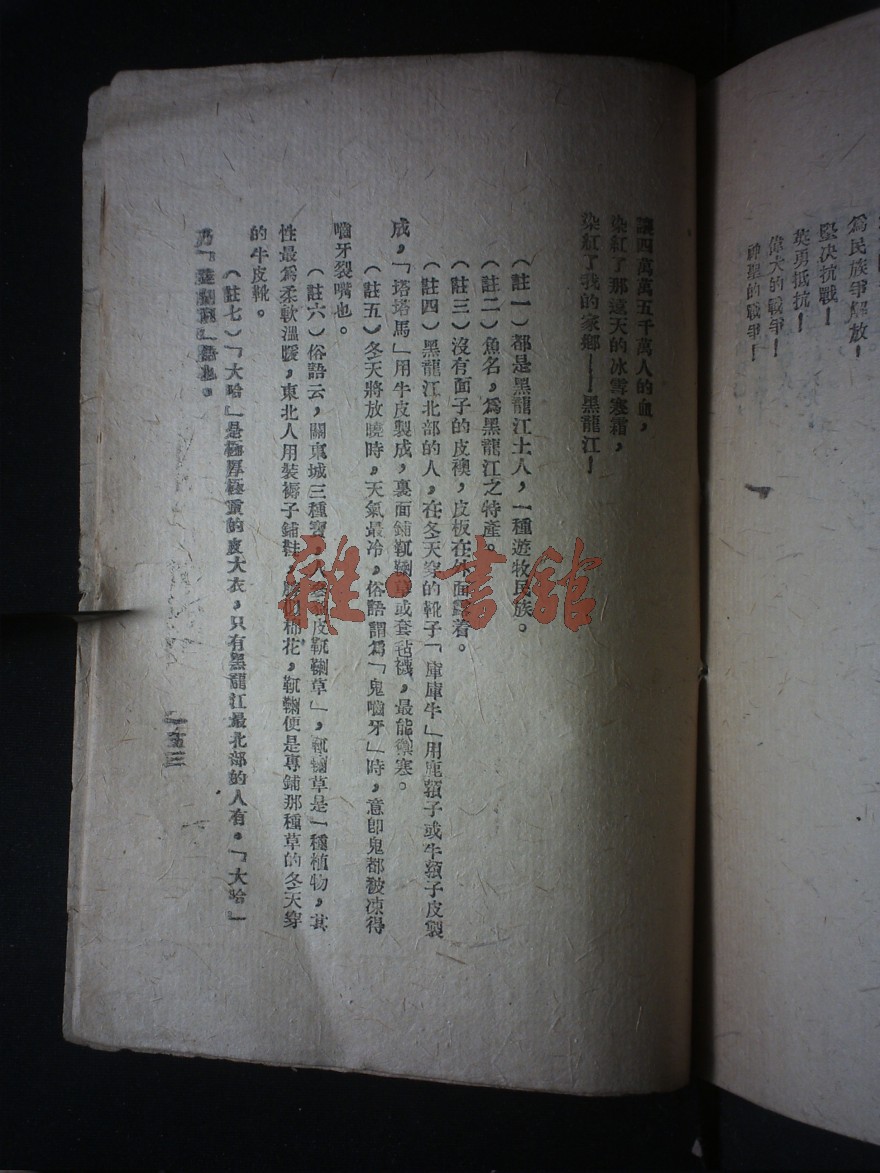 爲民族爭解放！
堅決抗戰！
英勇抵抗！
偉大的戰爭！
神聖的戰爭！
讓四萬萬五千萬人的血，
染紅了那遼天的冰雪寒霜，
染紅了我的家鄉——黑龍江！
（註一）都是黑龍江土人，一種遊牧民族。
（註二）魚名，爲黑龍江之特產。
（註三）沒有面子的皮襖，皮板在外面露着。
（註四）黑龍江北部的人，在冬天穿的靴子「庫庫牛」用鹿頦子或牛頦子皮製
成，「塔塔馬」用牛皮製成，裏面鋪靰鞡草或套毡襪，最能禦寒。
（註五）冬天將放曉時，天氣最冷，俗語謂爲「鬼嚙牙」時，意即鬼都被凍得
嚙牙裂嘴也。
（註六）俗語云，關東城三種寶，人 皮靰鞡草」，靰鞡草是一種植物，其
性最爲柔軟溫暖，東北人用裝褥子鋪鞋， 棉花，靰鞡便是專鋪那種草的冬天穿
的牛皮靴。
（註七）「大哈」是極厚極重的皮大衣，只有黑龍江最北部的人有。「大哈」
乃「 也。
一五三
雜·書館